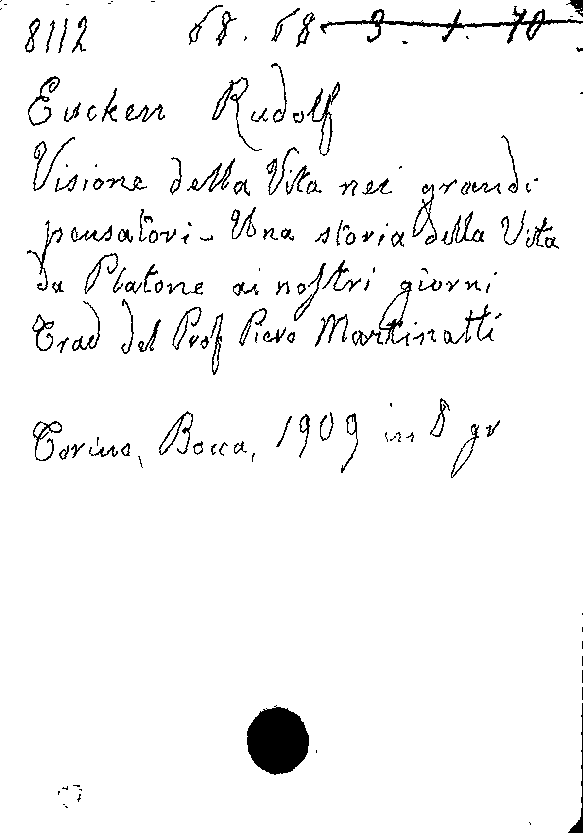 8112 68. 68 3. 1. 70
Eucken Rudolf
Visione della Vita nei grandi
pensatori - Una storia della Vita
da Platone ai nostri giorni
Trad del Prof Piero Martinatti
Torino, Bocca, 1909 in 8 gr